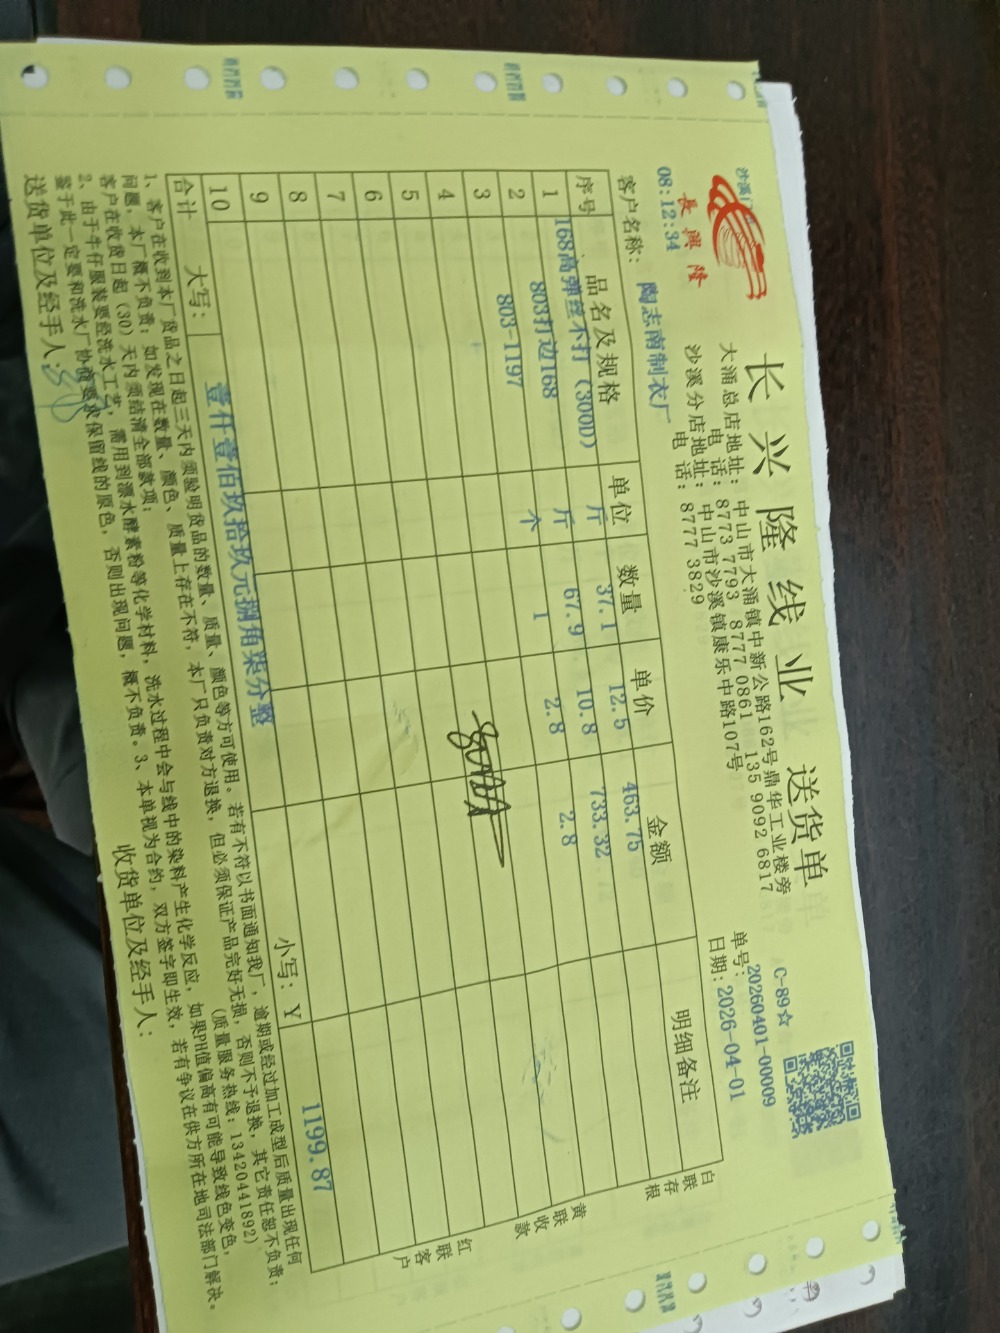 长兴隆线业 送货单
長興隆
08:12:34
大涌总店地址：中山市大涌镇中新公路162号鼎华工业楼旁
电 话：8773 7793 8777 0861 135 9092 6817
沙溪分店地址：中山市沙溪镇康乐中路107号
电 话：8777 3829
C-89☆
单号：20260401-00009
日期：2026-04-01
客户名称：陶志南制衣厂
序号 品名及规格 单位 数量 单价 金额 明细备注
1 168高弹丝不打（300D） 斤 37.1 12.5 463.75
2 803打边168 斤 67.9 10.8 733.32
3 803-1197 个 1 2.8 2.8
4
5
6
7
8
9
10
合计 大写：壹仟壹佰玖拾玖元捌角柒分整 小写：Y 1199.87
白联存根
黄联收款
红联客户
1、客户在收到本厂货品之日起三天内须验明货品的数量、质量、颜色等方可使用。若有不符以书面通知我厂，逾期或经过加工成型后质量出现任何
问题，本厂概不负责；如发现在数量、颜色、质量上存在不符，本厂只负责对方退换，但必须保证产品完好无损，否则不予退换，其它责任恕不负责；
客户在收货日起（30）天内须结清全部款项；（质量服务热线：13420441892）
2、由于牛仔服装要经洗水工艺，需用到漂水酵素粉等化学材料，洗水过程中会与线中的染料产生化学反应，如果PH值偏高有可能导致线色变色，
鉴于此一定要和洗水厂协商要求保留线的原色，否则出现问题，概不负责。3、本单视为合约，双方签字即生效，若有争议在供方所在地司法部门解决。
送货单位及经手人： 收货单位及经手人：